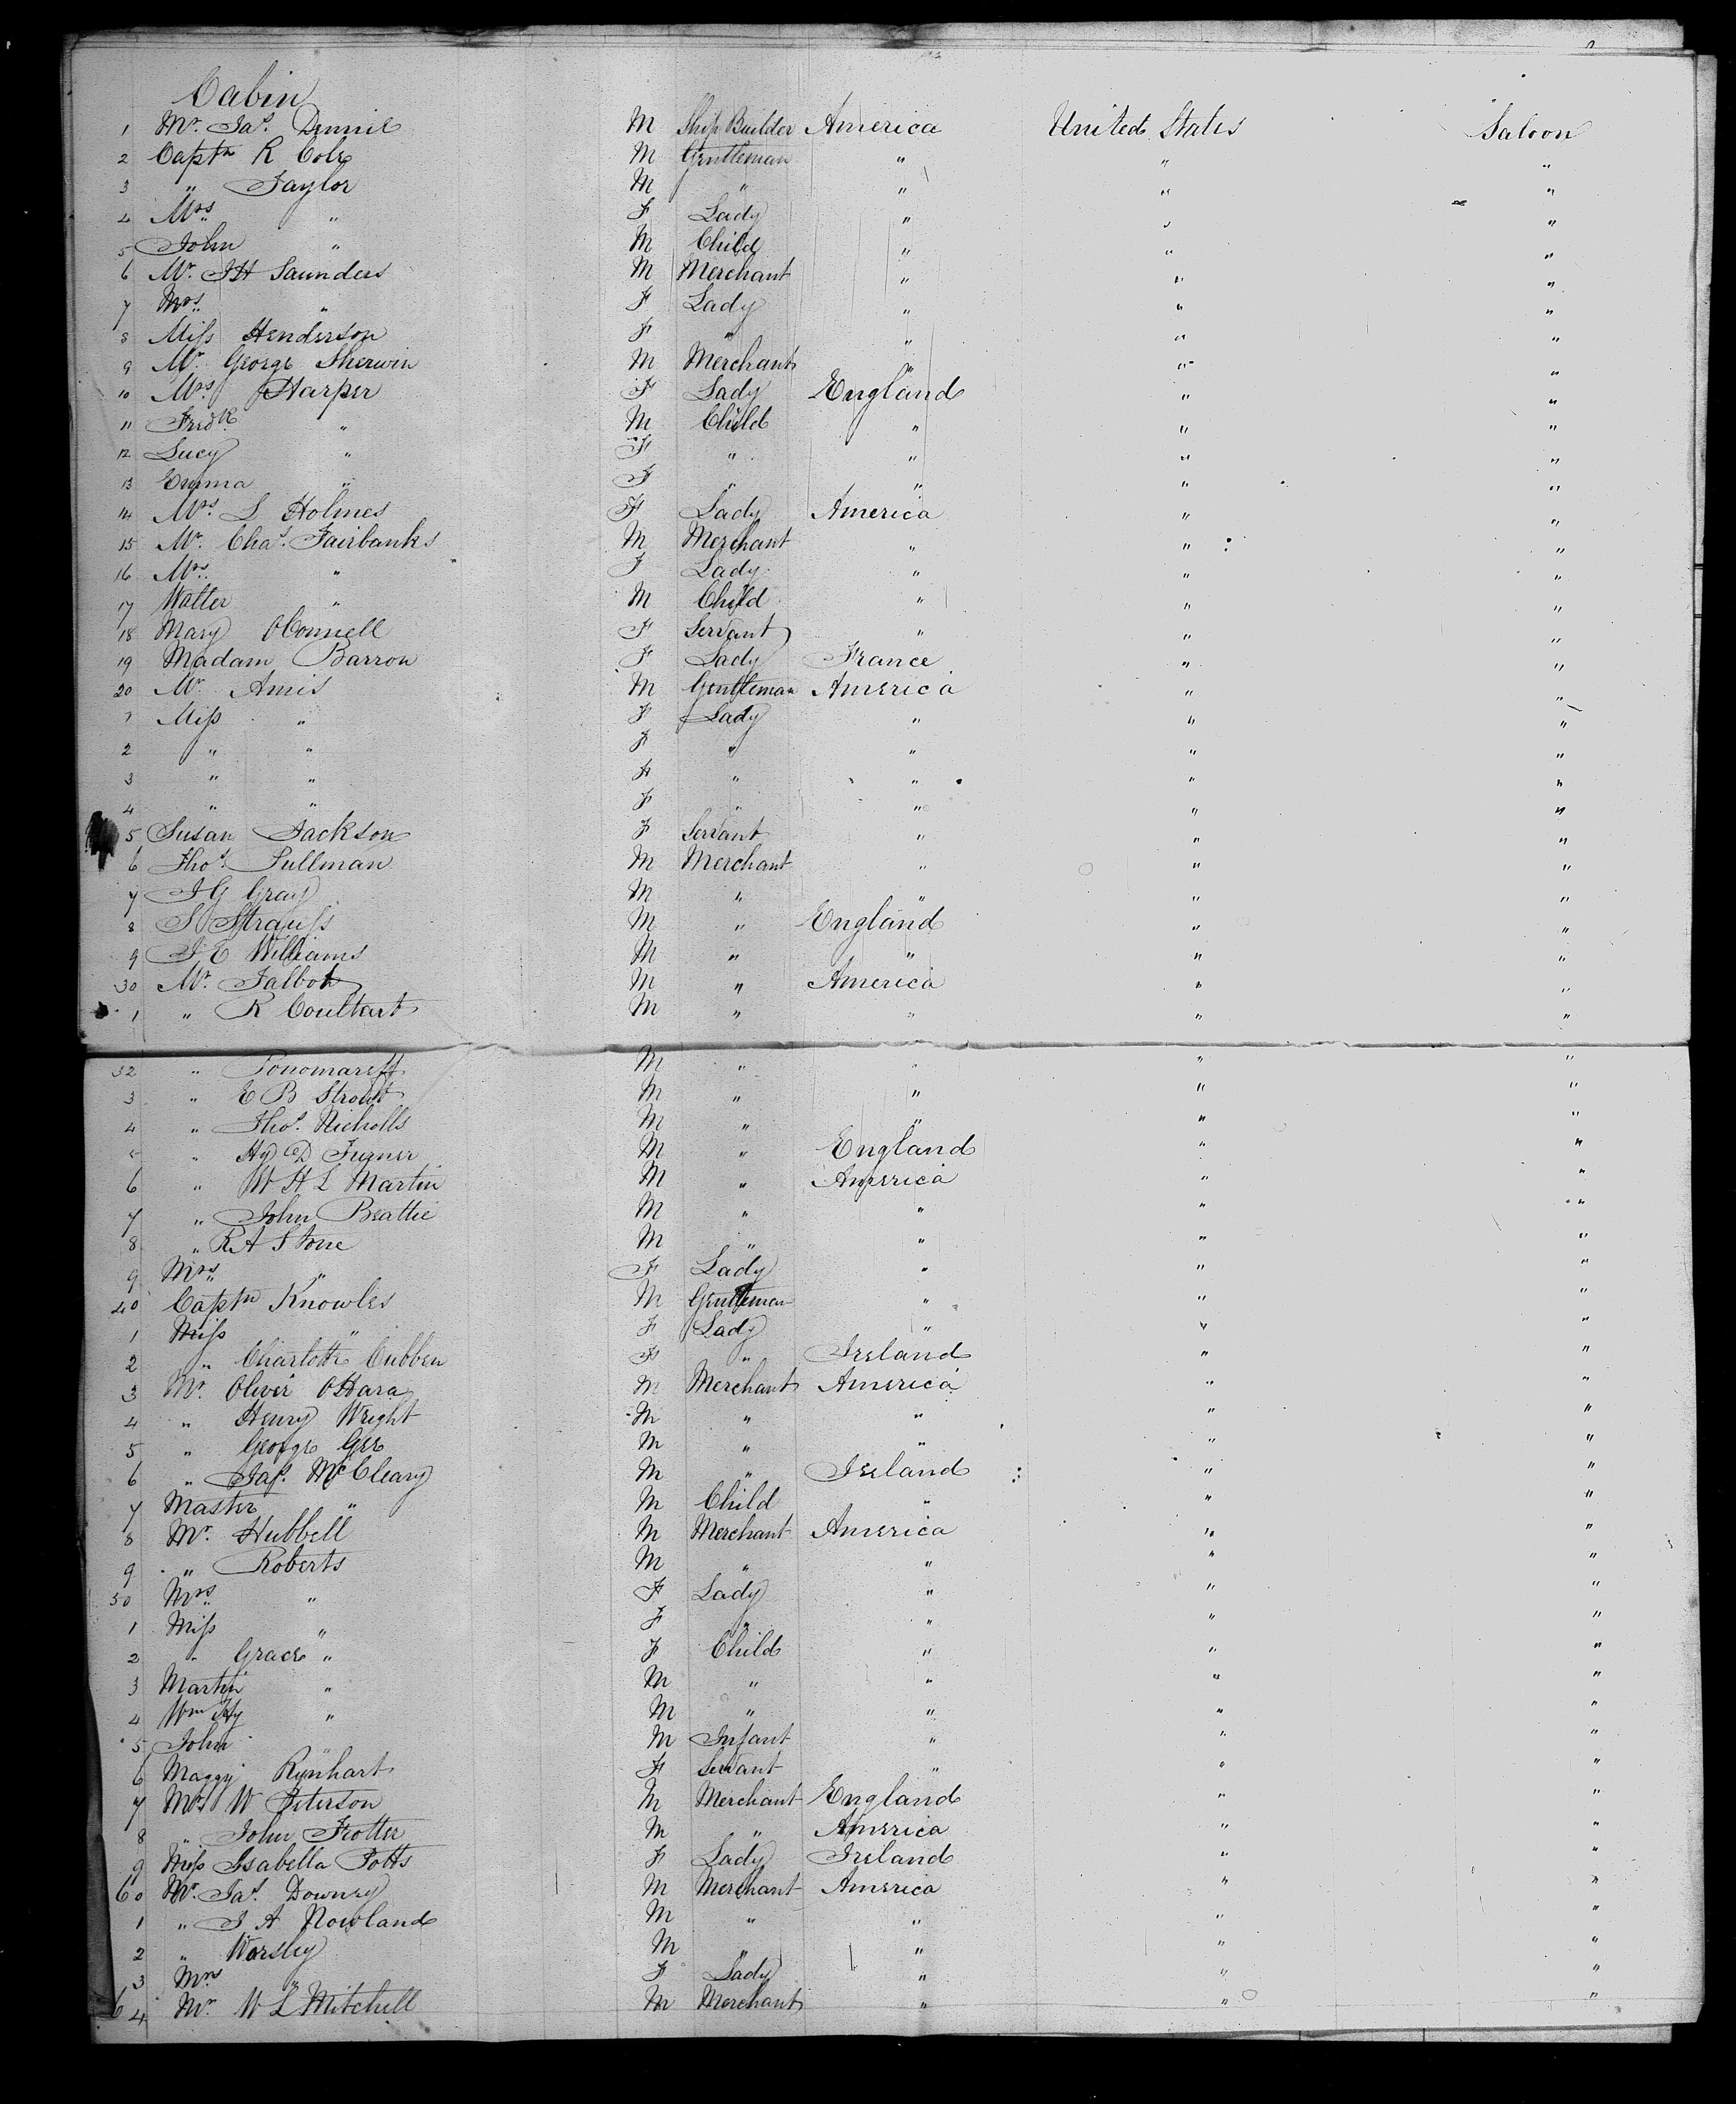 Cabin
1 Mr. Jas. Dennie M Ship Builder America United States Saloon
2 Captn R Cole M Gentleman " " "
3 " Taylor M " " " "
4 Mrs " F Lady " " "
5 John " M Child " " "
6 Mr. JH Saunders M Merchant " " "
7 Mrs " F Lady " " "
8 Miss Henderson F " " " "
9 Mr. George Sherwin M Merchant " " "
10 Mrs Harper F Lady England " "
11 Fredk " M Child " " "
12 Lucy " F " " " "
13 Emma " F " " " "
14 Mrs. L Holmes F Lady America " "
15 Mr. Chas. Fairbanks M Merchant " " "
16 Mrs. " F Lady " " "
17 Walter " M Child " " "
18 Mary OConnell F Servant " " "
19 Madam Barron F Lady France " "
20 Mr. Amis M Gentleman America " "
1 Miss " F Lady " " "
2 " " F " " " "
3 " " F " " " "
4 " " F " " " "
5 Susan Jackson F Servant " " "
6 Thos. Pullman M Merchant " " "
7 JG Gray M " " " "
8 S Strauss M " England " "
9 J E Williams M " " " "
30 Mr. Talbot M " America " "
1 " R Coultart M " " " "
32 " Ponomareff M " " " "
3 " E B Strout M " " " "
4 " Thos. Nicholls M " " " "
5 " Hy D Turner M " England " "
6 " W H L Martin M " America " "
7 " John Beattie M " " " "
8 " R A Stone M " " " "
9 Mrs " F Lady " " "
40 Captn Knowles M Gentleman " " "
1 Miss " F Lady " " "
2 " Charlotte Cubben F " Ireland " "
3 Mr. Oliver OHara M Merchant America " "
4 " Henry Wright M " " " "
5 " George Gee M " " " "
6 " Jas. McCleary M " Ireland " "
7 Master " M Child " " "
8 Mr. Hubbell M Merchant America " "
9 " Roberts M " " " "
50 Mrs. " F Lady " " "
1 Miss " F " " " "
2 " Grace " F Child " " "
3 Martin " M " " " "
4 Wm Hy " M " " " "
5 John " M Infant " " "
6 Maggy Rynhart F Servant " " "
7 Mr W Peterson M Merchant England " "
8 " John Trotter M " America " "
9 Miss Isabella Potts F Lady Ireland " "
60 Mr. Jas. Downey M Merchant America " "
1 " J A Nowland M " " " "
2 " Worsley M " " " "
3 Mrs " F Lady " " "
64 Mr. W L Mitchell M Merchant " " "